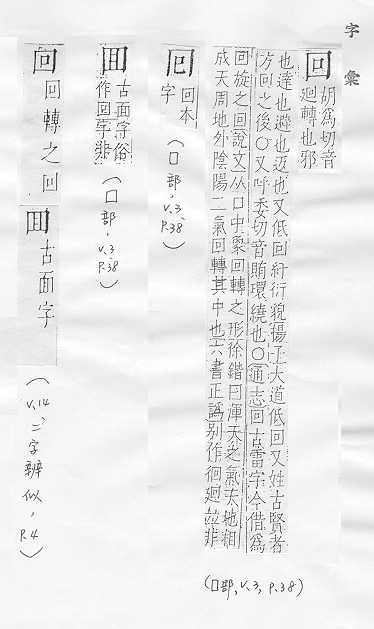 字彙
回 胡爲切音
迴轉也邪
也違也避也返也又低回紆衍貌揚子大道低回又姓古賢者
方回之後〇又呼委切音賄環繞也〇通志回古雷字今借爲
回旋之回說文从囗中象回轉之形徐鍇曰渾天之氣天地相
成天周地外陰陽二氣回轉其中也六書正譌別作徊迴竝非
(囗部, v.3, p.38)
囘 回本
字
(囗部, v.3, p.38)
囬 古面字俗
作回字非
(囗部, v.3, p.38)
回 回轉之回 囬 古面字
(v.14, 二字辨似, p.4)